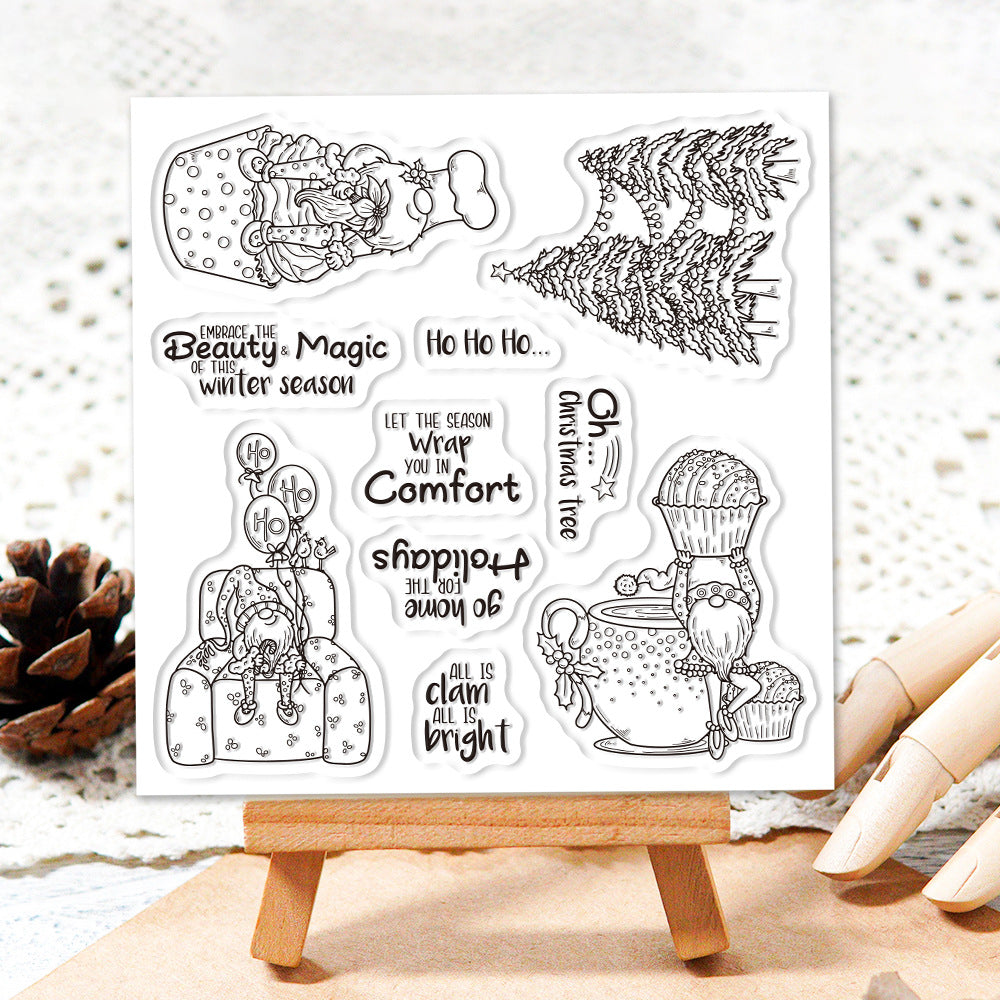 EMBRACE THE
Beauty & Magic
OF THIS
winter season
Ho Ho Ho...
LET THE SEASON
Wrap
YOU IN
Comfort
Oh...
Christmas tree
Ho
Ho
Ho
go home
FOR THE
Holidays
ALL IS
clam
ALL IS
bright